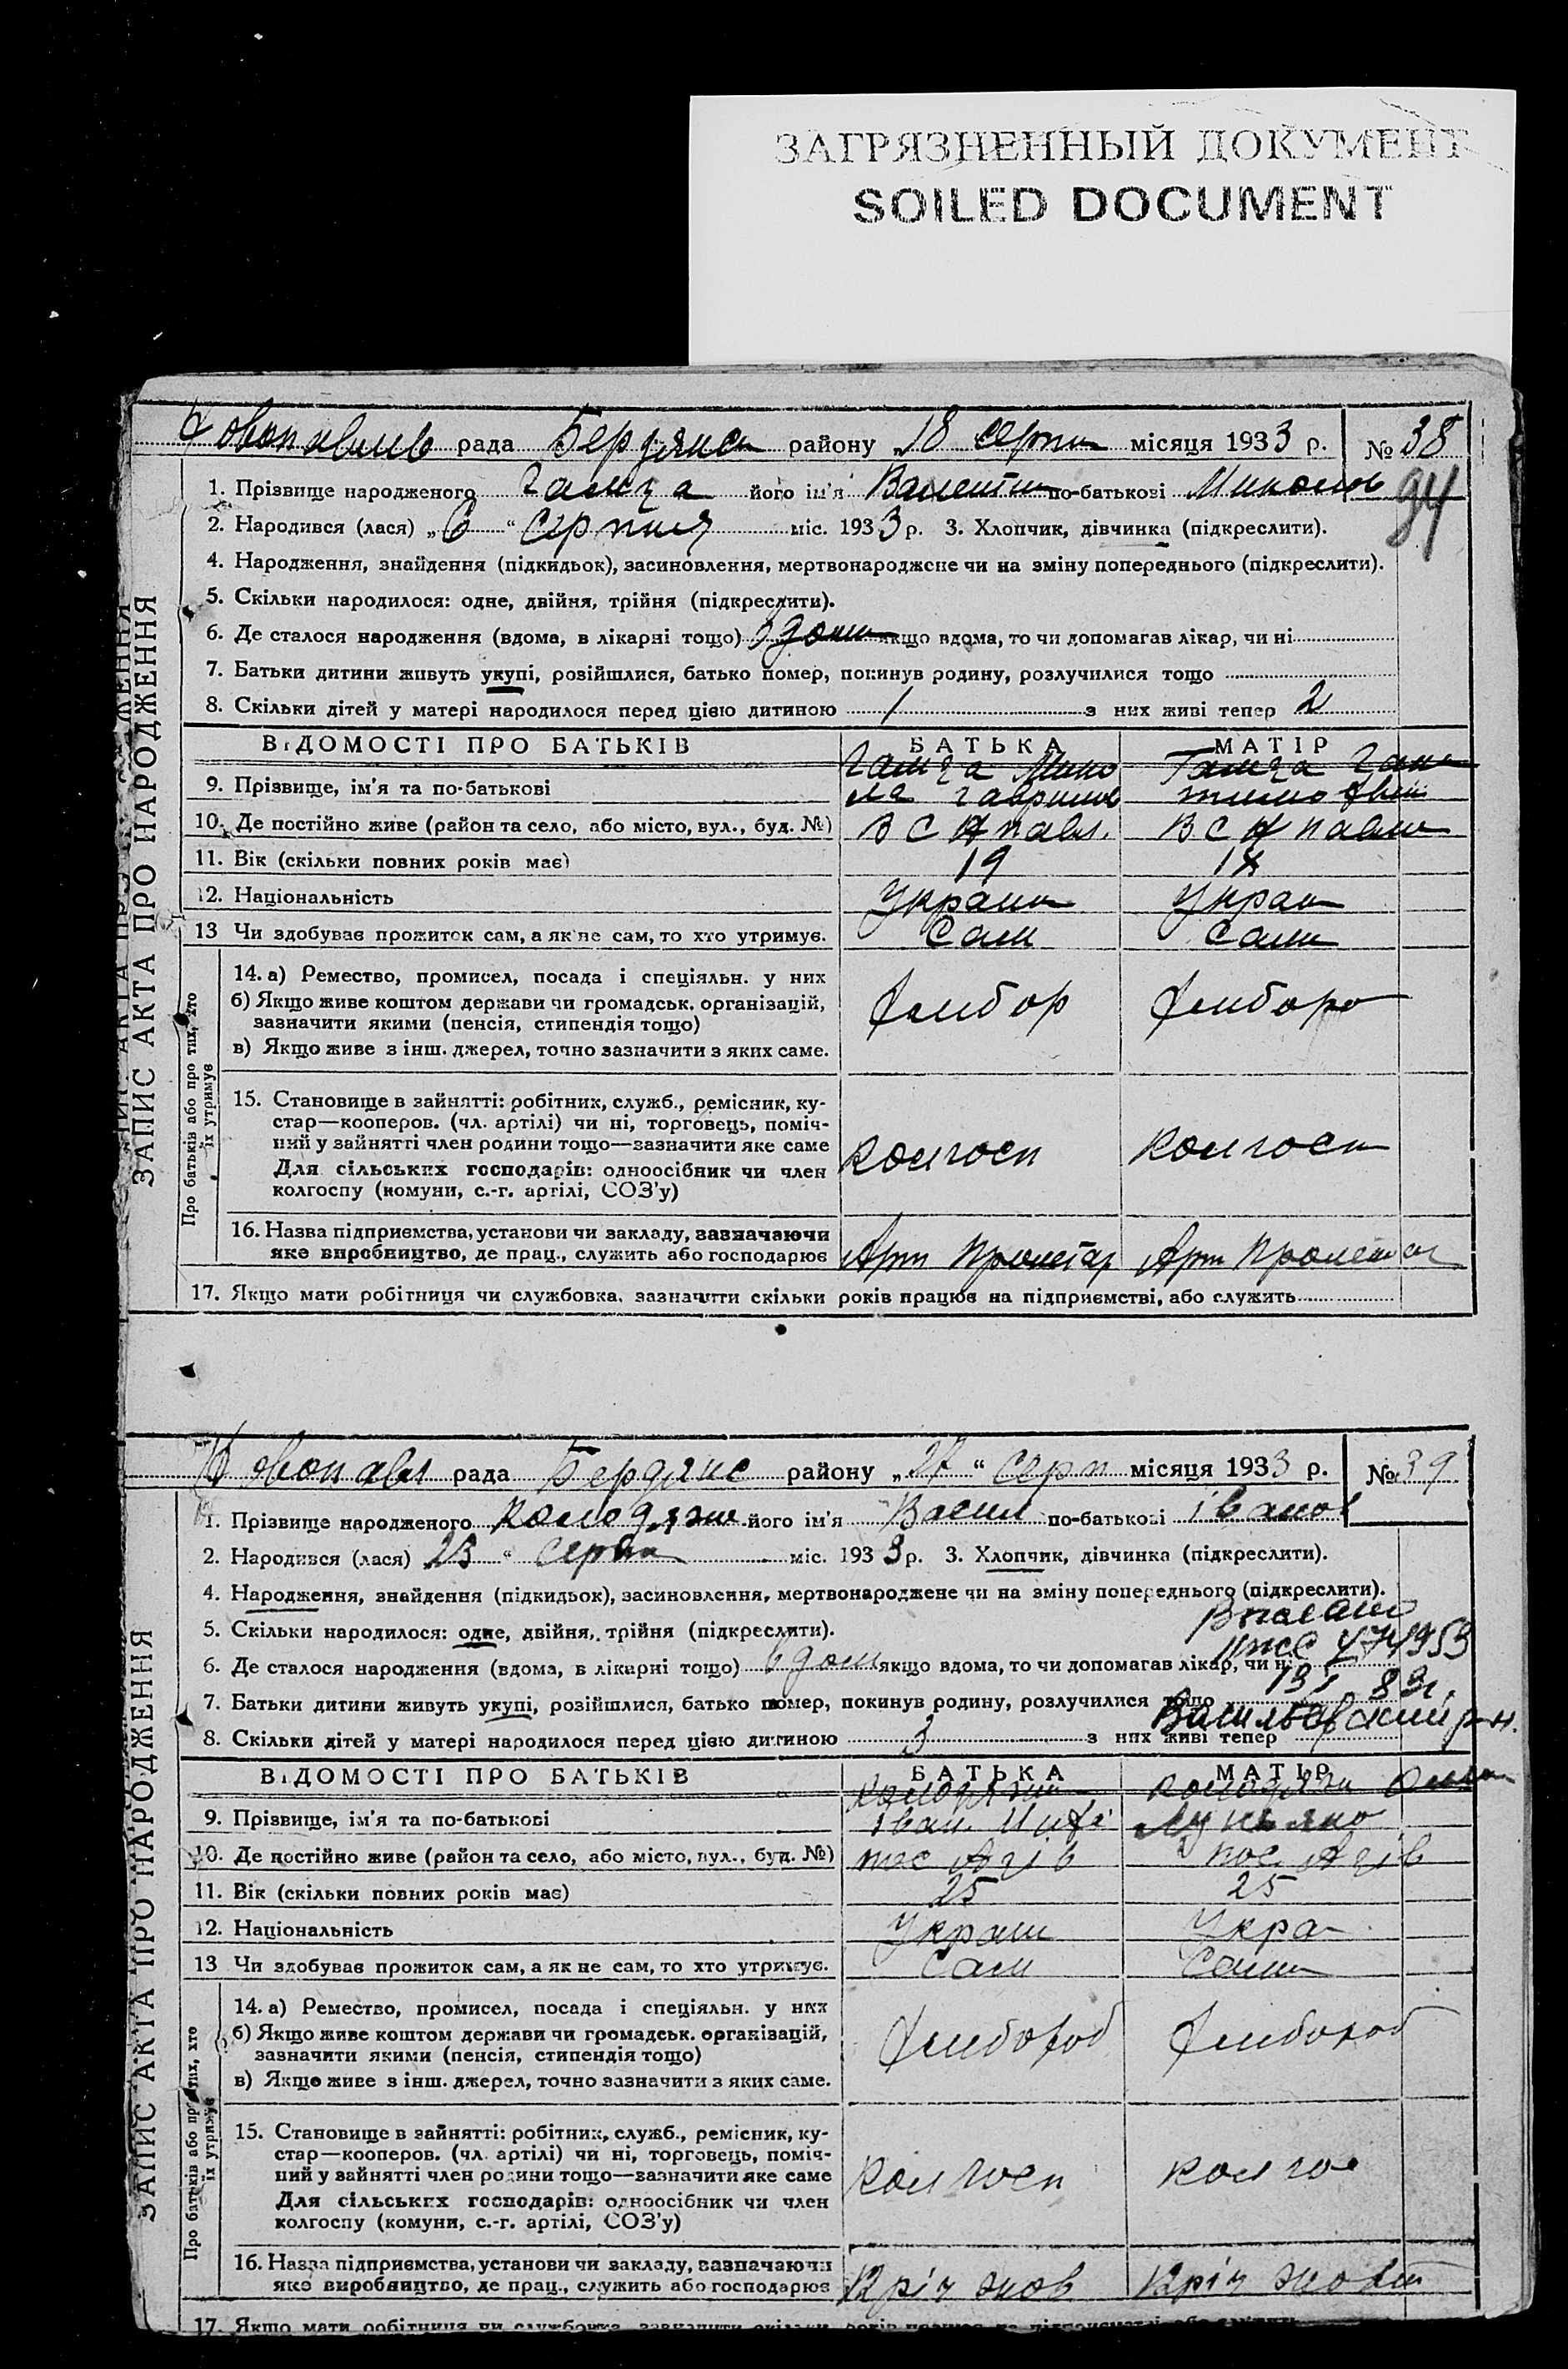 ЗАГРЯЗНЕННЫЙ ДОКУМЕНТ
SOILED DOCUMENT
рада Бердянсь району „18 серпн місяця 1933 р. № 38
1. Прізвище народженого Гамза його ім'я Валентин по-батькові Миколов 94
2. Народився (лася) „6“ серпня міс. 1933 р. 3. Хлопчик, дівчинка (підкреслити).
4. Народження, знайдення (підкидьок), засиновлення, мертвонароджене чи на зміну попереднього (підкреслити).
5. Скільки народилося: одне, двійня, трійня (підкреслити).
6. Де сталося народження (вдома, в лікарні тощо) вдома якщо вдома, то чи допомагав лікар, чи ні
7. Батьки дитини живуть укупі, розійшлися, батько помер, покинув родину, розлучилися тощо
8. Скільки дітей у матері народилося перед цією дитиною 1 з них живі тепер 2
ВІДОМОСТІ ПРО БАТЬКІВ БАТЬКА МАТІР
9. Прізвище, ім'я та по-батькові
10. Де постійно живе (район та село, або місто, вул., буд. №)
11. Вік (скільки повних років має) 19 18
12. Національність Украин Украи
13 Чи здобуває прожиток сам, а як не сам, то хто утримує. Сам Сама
14. а) Ремество, промисел, посада і спеціяльн. у них
б) Якщо живе коштом держави чи громадськ. організацій,
зазначити якими (пенсія, стипендія тощо)
в) Якщо живе з інш. джерел, точно зазначити з яких саме.
Хлибор Хлиборо
15. Становище в зайнятті: робітник, служб., ремісник, ку-
стар—кооперов. (чл. артілі) чи ні, торговець, поміч-
ний у зайнятті член родини тощо—зазначити яке саме
Для сільських господарів: одноосібник чи член
колгоспу (комуни, с.-г. артілі, СОЗ'у)
колгосп колгосп
16. Назва підприємства, установи чи закладу, зазначаючи
яке виробництво, де прац., служить або господарює
Арт Пролетар Арт Пролетар
17. Якщо мати робітниця чи службовка, зазначити скільки років працює на підприємстві, або служить
ЗАПИС АКТА ПРО НАРОДЖЕННЯ
Про батьків або про тих, хто
їх утримує
рада Бердянс району „27“ серп місяця 1933 р. № 39
1. Прізвище народженого Колодяж його ім'я Васил по-батькові Іванов
2. Народився (лася) 23 “ серпня міс. 1933 р. 3. Хлопчик, дівчинка (підкреслити).
4. Народження, знайдення (підкидьок), засиновлення, мертвонароджене чи на зміну попереднього (підкреслити).
5. Скільки народилося: одне, двійня, трійня (підкреслити).
6. Де сталося народження (вдома, в лікарні тощо) вдом якщо вдома, то чи допомагав лікар, чи ні
7. Батьки дитини живуть укупі, розійшлися, батько помер, покинув родину, розлучилися тощо
Васильевский р-н.
8. Скільки дітей у матері народилося перед цією дитиною 3 з них живі тепер
ВІДОМОСТІ ПРО БАТЬКІВ БАТЬКА МАТІР
9. Прізвище, ім'я та по-батькові Іван
10. Де постійно живе (район та село, або місто, вул., буд. №) пос Азів пос Азів
11. Вік (скільки повних років має) 25 25
12. Національність Украин Укра
13 Чи здобуває прожиток сам, а як не сам, то хто утримує. Сам Сама
14. а) Ремество, промисел, посада і спеціяльн. у них
б) Якщо живе коштом держави чи громадськ. організацій,
зазначити якими (пенсія, стипендія тощо)
в) Якщо живе з інш. джерел, точно зазначити з яких саме.
Хлибороб Хлибороб
15. Становище в зайнятті: робітник, служб., ремісник, ку-
стар—кооперов. (чл. артілі) чи ні, торговець, поміч-
ний у зайнятті член родини тощо—зазначити яке саме
Для сільських господарів: одноосібник чи член
колгоспу (комуни, с.-г. артілі, СОЗ'у)
колгосп колгос
16. Назва підприємства, установи чи закладу, зазначаючи
яке виробництво, де прац., служить або господарює
17. Якщо мати робітниця чи службовка, зазначити скільки років працює на підприємстві або служить
ЗАПИС АКТА ПРО НАРОДЖЕННЯ
Про батьків або про тих, хто
їх утримує